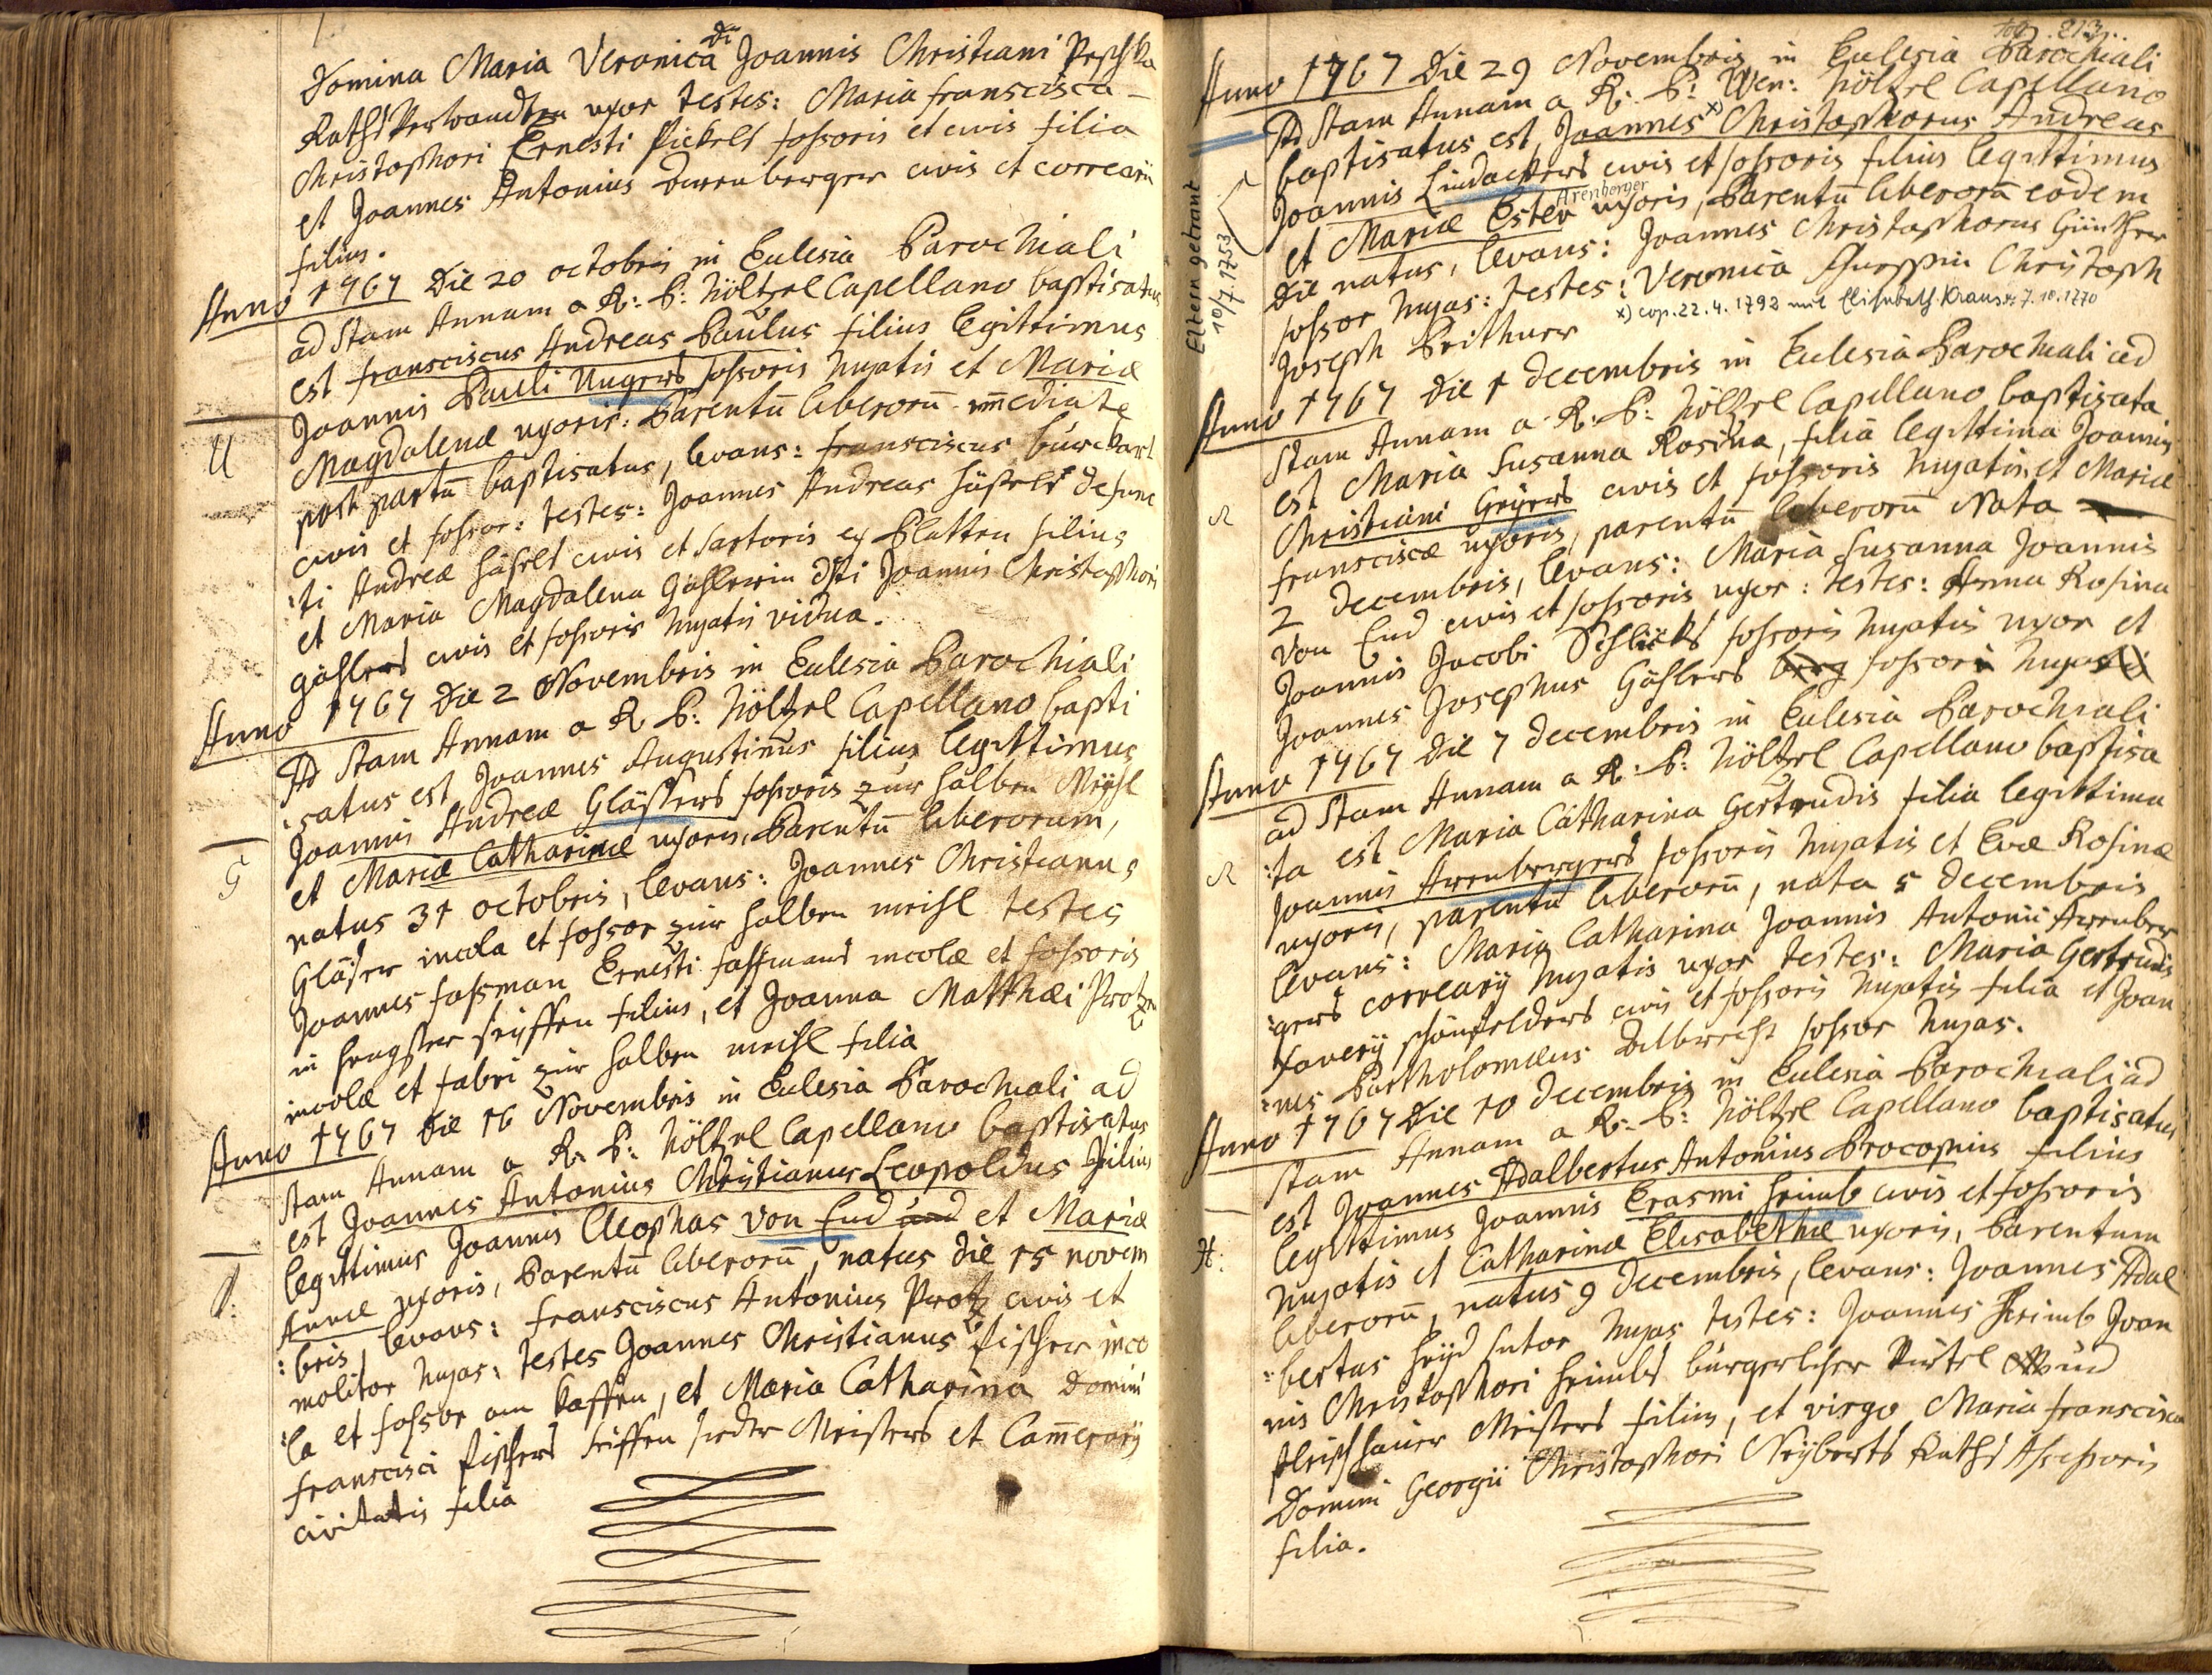 Domina Maria Veronica Dni Joannis Christiani Peschka
Raths Verwandten uxor testes: Maria franscisca
Christophori Ernesti Pickels fossoris et civis filia
et Joannes Antonius Arrenberger civis et correarii
filius.
Anno 1767 Die 20 octobris in Eclesia Parochiali
ad Stam Annam a R: P: Höltzel Capellano baptisatus
est Fransciscus Andreas Paulus filius legittimus
Joannis Pauli Ungers fossoris hujatis et Mariæ
Magdalenæ uxoris: Parentū liberorū im̄ediate
post partū baptisatus, levans: fransciscus burckart
civis et fossor: testes: Joannes Andreas häßelt defunc
:ti Andreæ häßelt civis et sartoris ex Platten filius
et Maria Magdalena Gahlerin dfti Joannis Christophori
gahlers civis et fossoris hujatis vidua.
U
Anno 1767 Die 2 Novembris in Eclesia Parochiali
Ad Stam Annam a R: P: Höltzel Capellano bapti
:satus est Joannes Augustinus filius legittimus
Joannis Andreæ Gläßers fossoris zur halben Meyhl
et Mariæ Catharinæ uxoris, Parentū liberorum,
natus 31 octobris, levans: Joannes Christianus
Gläßer incola et fossor zur halben meihl testes
Joannes faßman Ernesti faßmans incolæ et fossoris
in hengster seyffen filius, et Joanna Matthæi Protzen
incolæ et fabri zur halben meihl filia
G
Anno 1767 die 16 Novembris in Eclesia Parochiali ad
Stam Annam a R: P: Höltzel Capellano baptisatus
est Joannes Antonius Christianus Leopoldus filius
legittimus Joannis Cleophas von End und et Mariæ
Annæ uxoris, Parentū liberorū, natus die 15 novem
:bris, levans: fransciscus Antonius Protz civis et
molitor hujas, testes Joannes Christianus fischer inco
:la et fossor am kaffen, et Maria Catharina Domini
franscisci fischers seiffen sieder Meisters et Cam̄erarij
civitatis filia
fol. 213.
Anno 1767 Die 29 Novembris in Eclesia Parochiali
Ad Stam Annam a R: P: Wen: Höltzel Capellano
baptisatus est, Joannes x) Christophorus Andreas
Joannis Lindackers civis et fossoris filius legittimus
Arenberger
et Mariæ Ester uxoris, Parentū liberorū eodem
die natus, levans: Joannes Christophorus Günther
fossor hujas: testes: Veronica Christoph
Joseph Peithner
x) cop. 22. 4. 1792 mit Elisabeth Kraus *: 7. 10. 1770
Eltern getraut
10/7.1753
Anno 1767 Die 1 decembris in Eclesia Parochiali ad
Stam Annam a R: P: Höltzel Capellano baptisata
est Maria Susanna Rosina, filia legittima Joannis
Christiani Geyers civis et fossoris hujatis et Mariæ
fransciscæ uxoris, parentū liberorū Nata
2 decembris, levans: Maria Susanna Joannis
von End civis et fossoris uxor: testes: Anna Rosina
Joannis Jacobi Schlicks fossoris hujatis uxor et
Joannes Josephus Gahlers fossor hujas
Anno 1767 Die 7 decembris in Eclesia Parochiali
ad Stam Annam a R: P: Höltzel Capellano baptisa
:ta est Maria Catharina Gertrudis filia legittima
Joannis Arrenbergers fossoris hujatis et Evæ Rosinæ
uxoris, parentū liberorū, nata 5 decembris
levans: Maria Catharina Joannis Antonii Arrenber
:gers correarij hujatis uxor testes: Maria Gertrudis
Xaverij schönfelders civis et fossoris hujatis filia et Joan
:nes Bartholomæus Albrecht fossor hujas.
Anno 1767 Die 10 decembris in Eclesia Parochiali ad
Stam Annam a R: P: Höltzel Capellano baptisatus
est Joannes Adalbertus Antonius Procopius filius
legittimus Joannis Erasmi heimb civis et fossoris
hujatis et Catharinæ Elisabethæ uxoris, Parentum
liberorū, natus 9 decembris, levans: Joannes Adal
:bertus heyd sutor hujas testes: Joannes heimb Joan
nis Christophori heimbs bürgerlicher Viertel und
fleischhauer Meisters filius, et virgo Maria franscisca
Domini Georgii Christophori Neyberts Raths Assessoris
filia.
H: